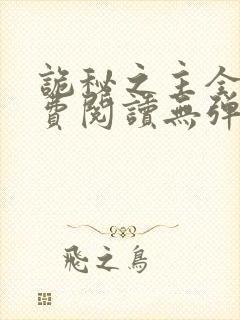 詭秘之主全
費閱讀無彈
飛之鳥